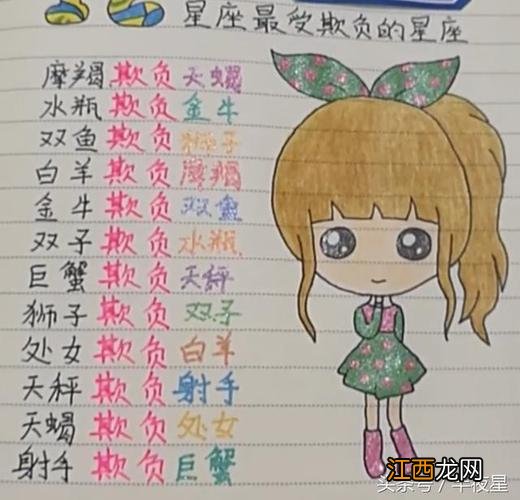 星座最受欺负的星座
摩羯欺负天蝎
水瓶欺负金牛
双鱼欺负狮子
白羊欺负摩羯
金牛欺负双鱼
双子欺负水瓶
巨蟹欺负天秤
狮子欺负双子
处女欺负白羊
天秤欺负射手
天蝎欺负处女
射手欺负巨蟹
江西龙网
头条号/半夜星